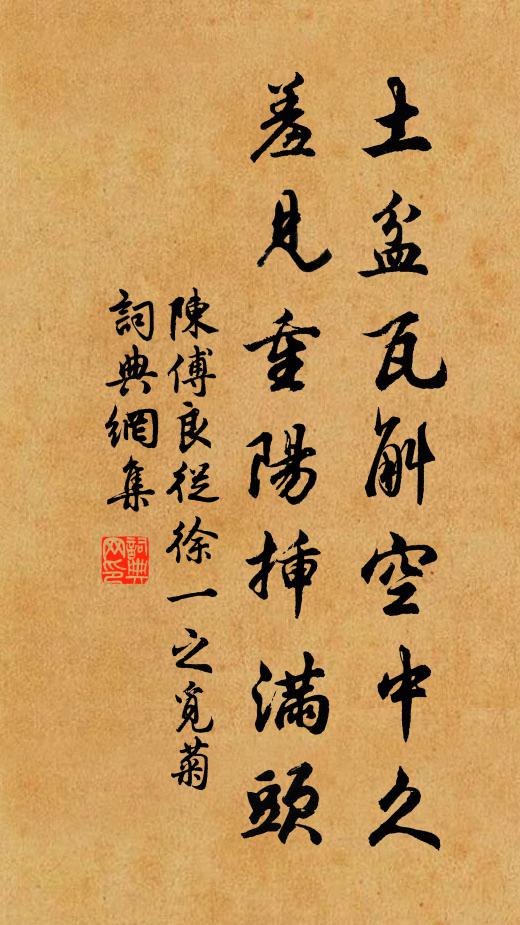 土盆瓦斛空中久
羞見重陽挿滿頭
陳傅良從徐一之覓菊
詞典網集
詞典網印